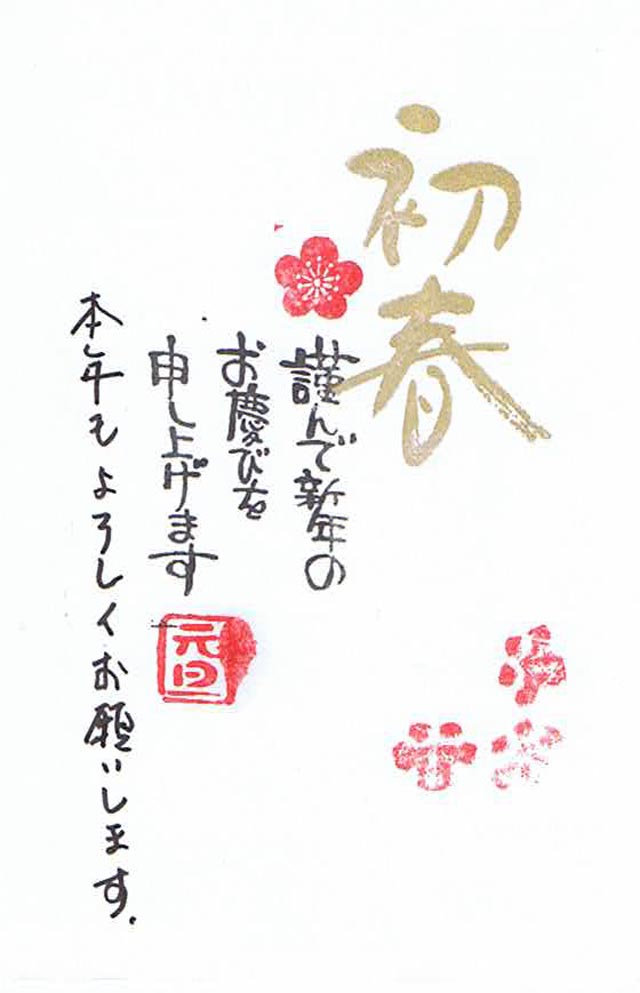 初春
謹んで新年の
お慶びを
申し上げます
元旦
本年もよろしくお願いします.